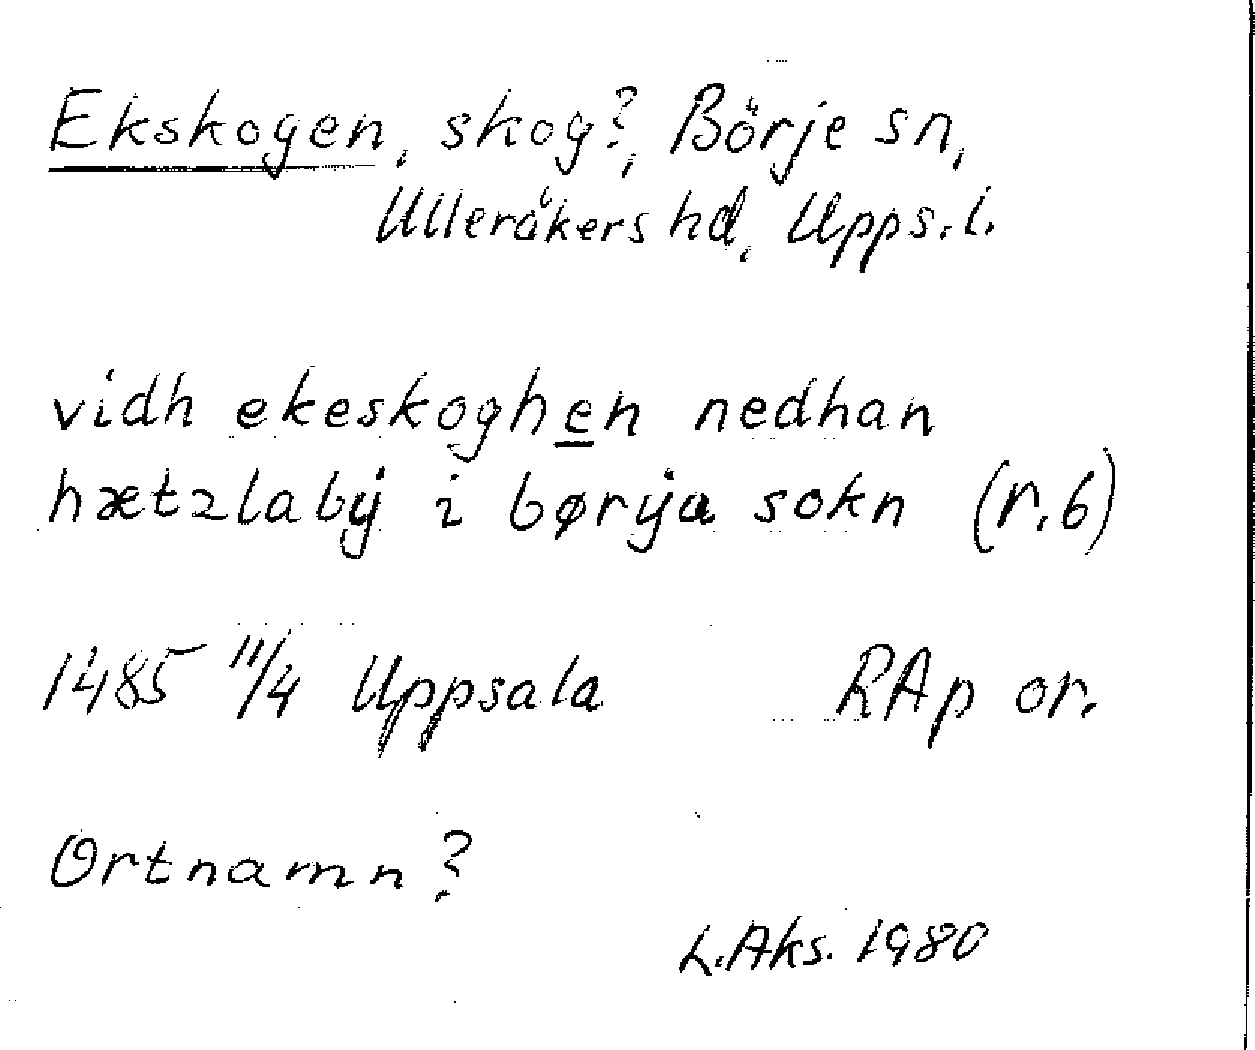 Ekskogen, skog?, Börje sn,
Ulleråkers hd, Upps. l.
vidh ekeskoghen nedhan
hætzlabÿ i børÿa sokn (r. 6)
1485 11/4 Uppsala RAp or.
Ortnamn?
L. Aks. 1980